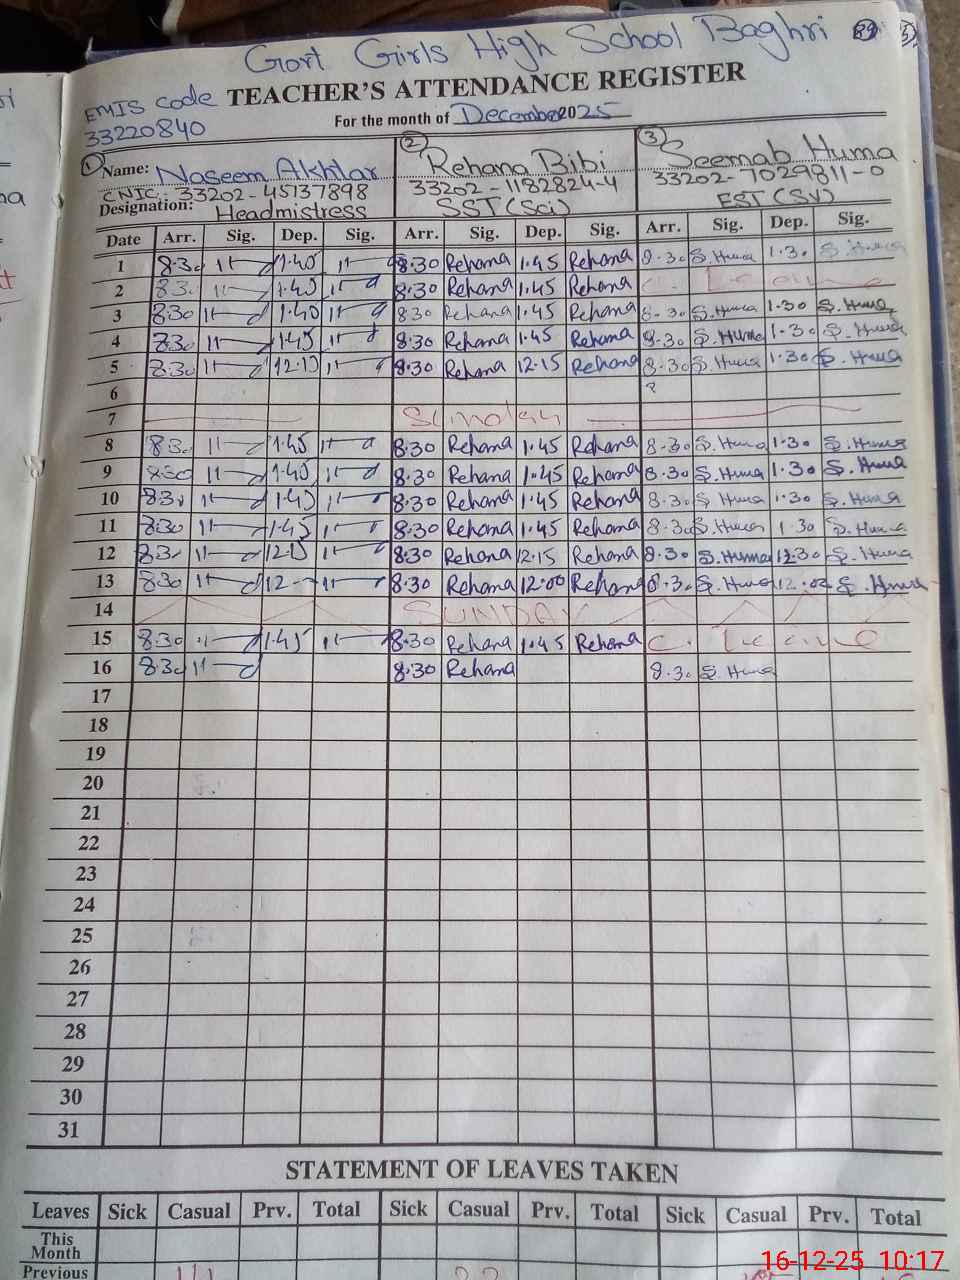 Govt Girls High School Baghri
EMIS code TEACHER'S ATTENDANCE REGISTER
33220840 For the month of December 2025
1 Name: Naseem Akhtar 2 Rehana Bibi 3 Seemab Huma
CNIC: 33202-45137898 33202-1182824-4 33202-7029811-0
Designation: Headmistress SST (Sci) EST (SV)
Date Arr. Sig. Dep. Sig. Arr. Sig. Dep. Sig. Arr. Sig. Dep. Sig.
1 8.30 1.45 8.30 Rehana 1.45 Rehana 8.30 S.Huma 1.30 S.Huma
2 8.30 1.45 8.30 Rehana 1.45 Rehana C. Leave
3 8.30 1.45 8.30 Rehana 1.45 Rehana 8.30 S.Huma 1.30 S.Huma
4 8.30 1.45 8.30 Rehana 1.45 Rehana 8.30 S.Huma 1.30 S.Huma
5 8.30 12.15 8.30 Rehana 12.15 Rehana 8.30 S.Huma 1.30 S.Huma
6
7 Sunday
8 8.30 1.45 8.30 Rehana 1.45 Rehana 8.30 S.Huma 1.30 S.Huma
9 8.30 1.45 8.30 Rehana 1.45 Rehana 8.30 S.Huma 1.30 S.Huma
10 8.30 1.45 8.30 Rehana 1.45 Rehana 8.30 S.Huma 1.30 S.Huma
11 8.30 1.45 8.30 Rehana 1.45 Rehana 8.30 S.Huma 1.30 S.Huma
12 8.30 12.15 8.30 Rehana 12.15 Rehana 8.30 S.Huma 12.30 S.Huma
13 8.30 12 8.30 Rehana 12.00 Rehana 8.30 S.Huma 12.00 S.Huma
14 SUNDAY
15 8.30 1.45 8.30 Rehana 1.45 Rehana C. Leave
16 8.30 8.30 Rehana 8.30 S.Huma
17
18
19
20
21
22
23
24
25
26
27
28
29
30
31
STATEMENT OF LEAVES TAKEN
Leaves Sick Casual Prv. Total Sick Casual Prv. Total Sick Casual Prv. Total
This Month
Previous
16-12-25 10:17